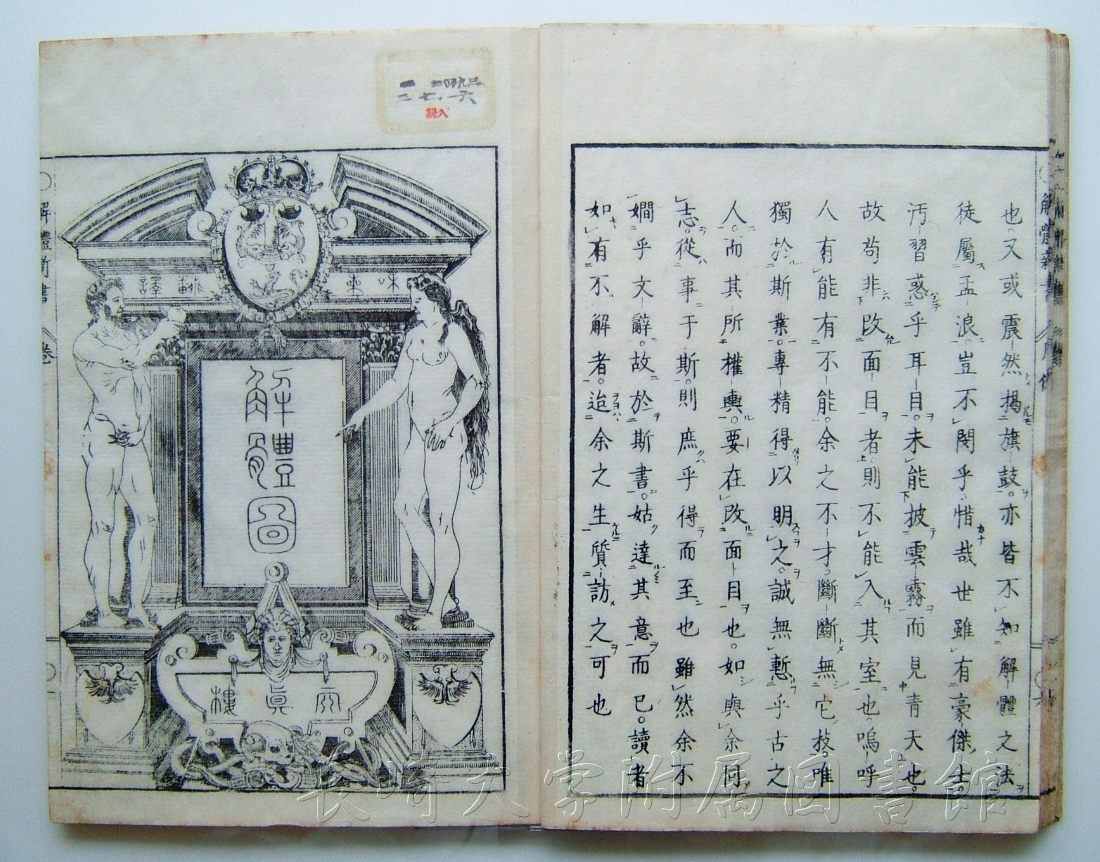 也又或震然揭旗鼓。亦皆不知解體之法
徒屬孟浪。豈不閔乎。惜哉世雖有豪傑士
汚習惑乎耳目。未能披雲霧而見青天也。
故苟非改面目者則不能入其室也嗚呼
人有能有不能。余之不才。斷斷無它技唯
獨於斯業。專精得以明之。誠無慙乎古之
人。而其所權輿。要在改面目也。如與余同
志。從事于斯。則庶乎得而至也雖然余不
嫺乎文辭。故於斯書。姑達其意而已。讀者
如有不解者。迨余之生質訪之可也
解體新書
解體圖
天眞樓
解體新書 卷
長崎大学附属図書館